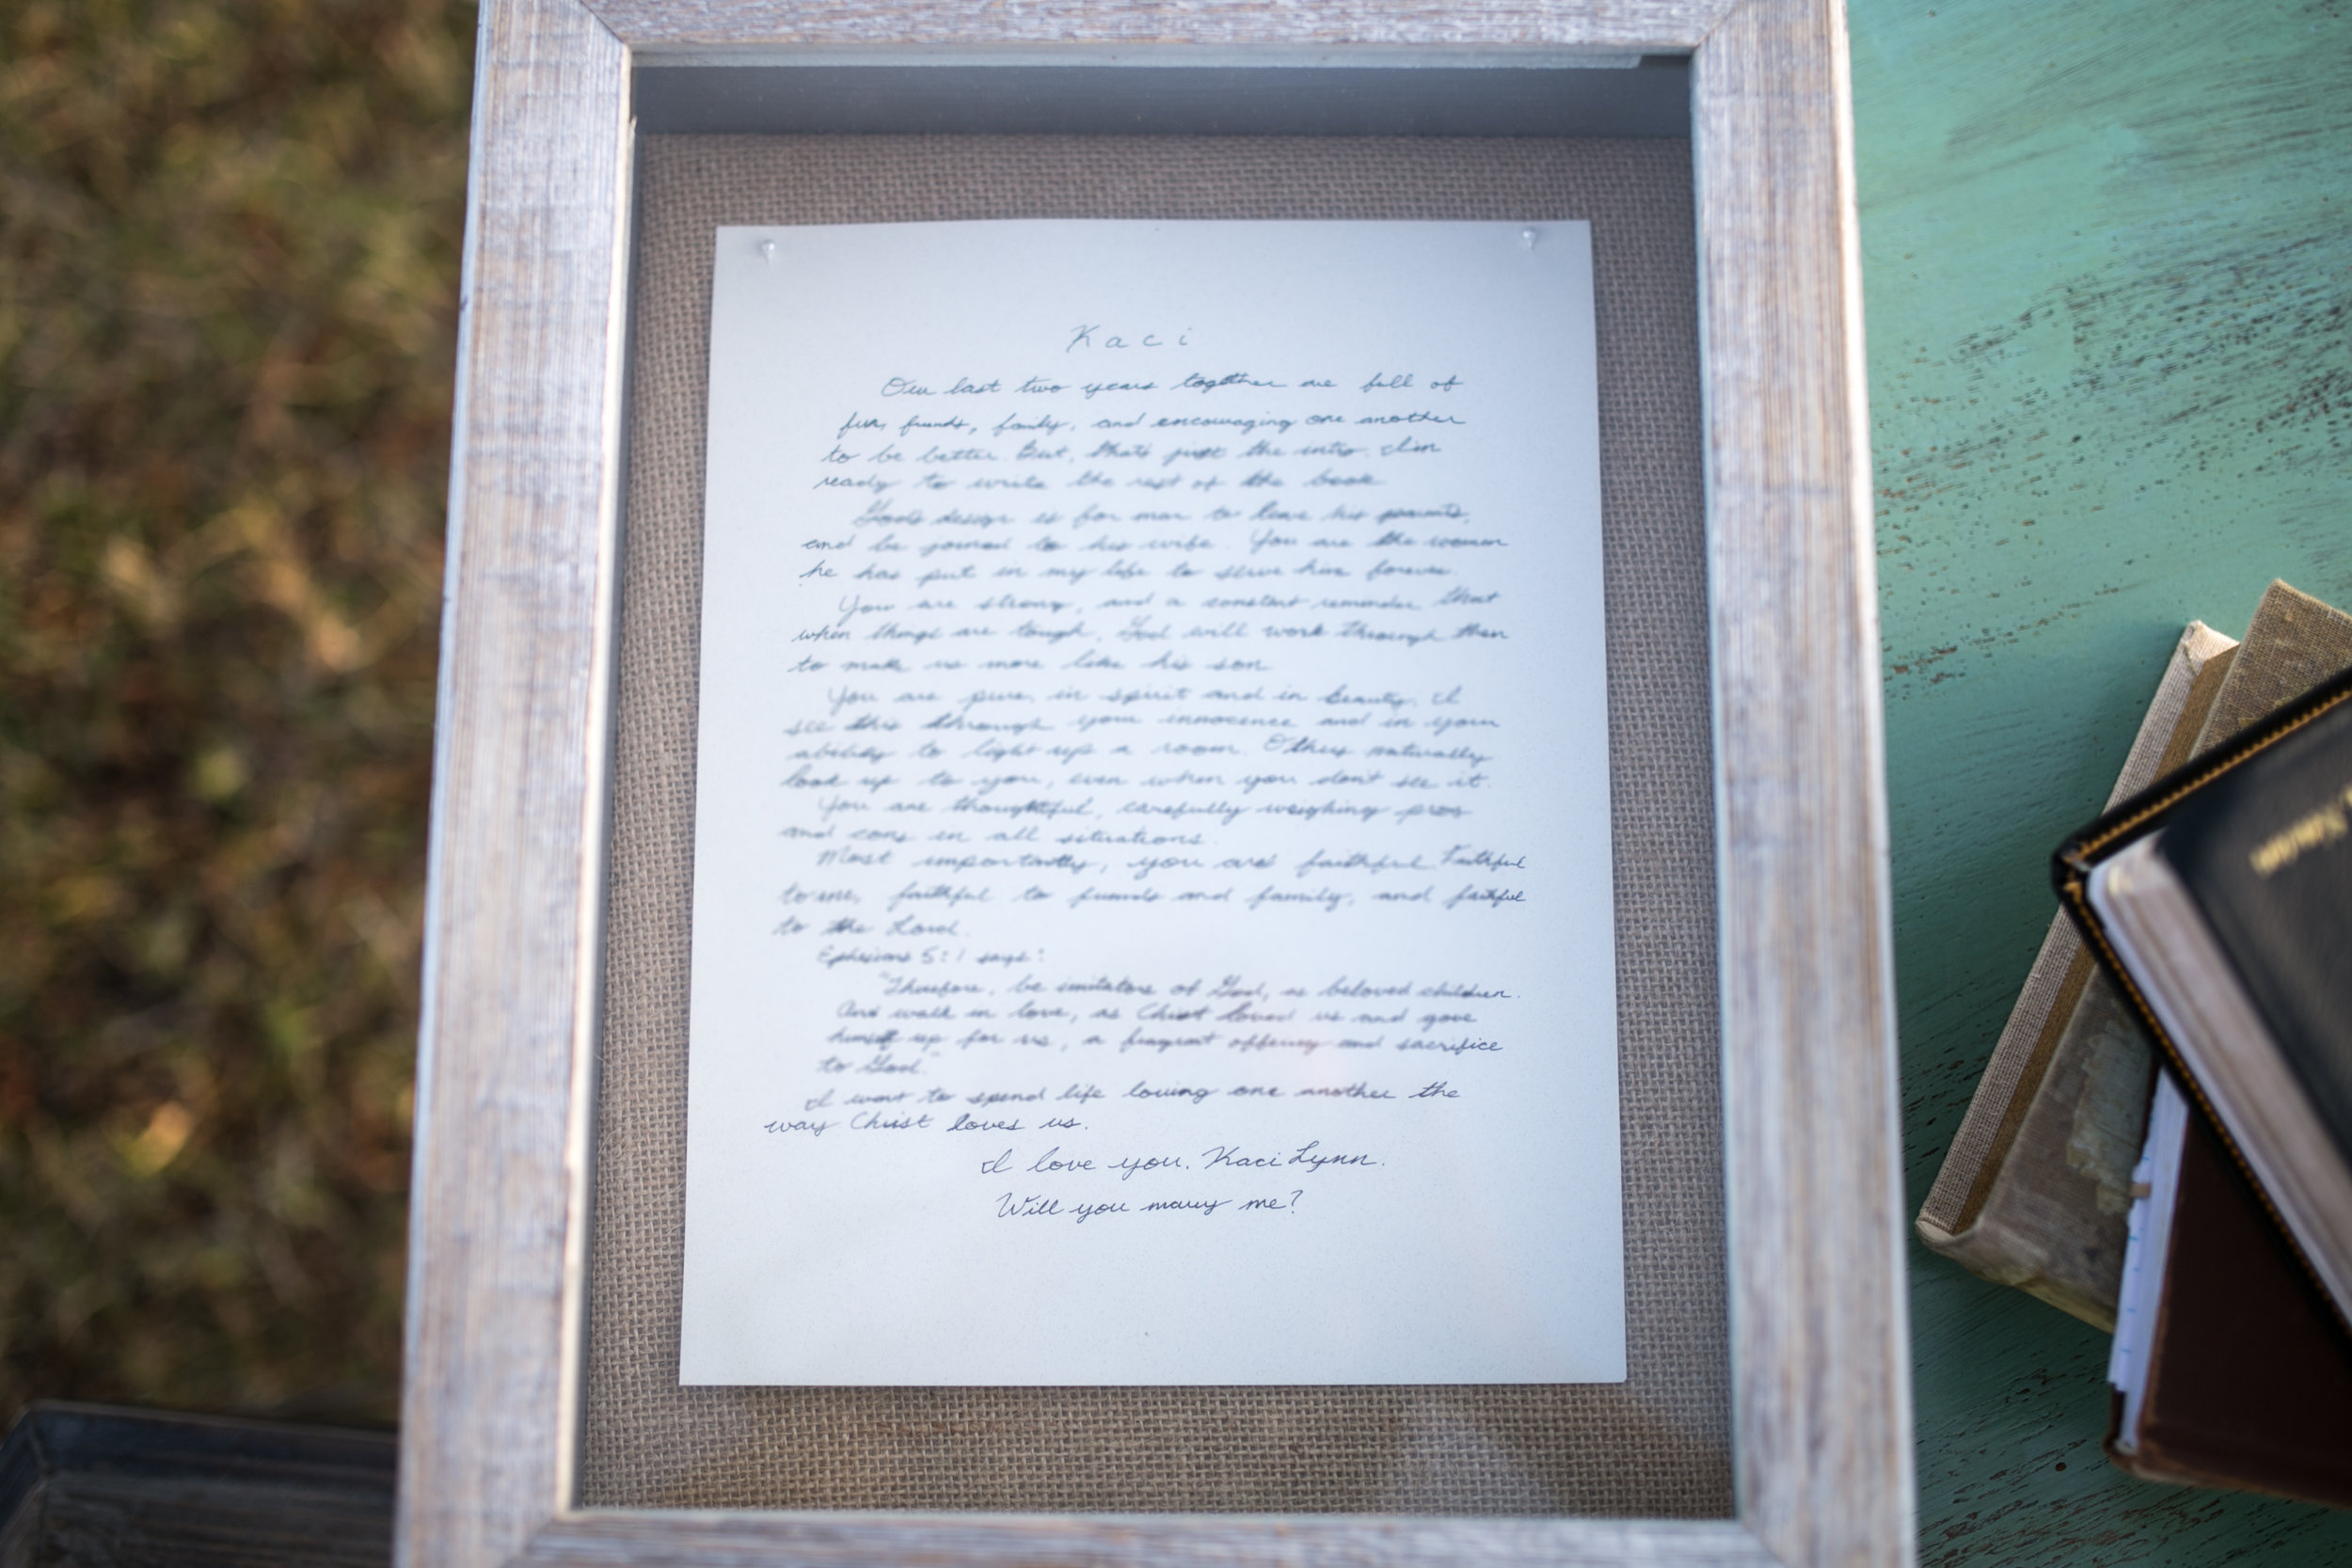 Kaci
Our last two years together are full of
fun, friends, family, and encouraging one another
to be better. But, that's just the intro. I'm
ready to write the rest of the book
God's design is for man to leave his parents,
and be joined to his wife. You are the woman
he has put in my life to serve him forever.
You are strong, and a constant reminder that
when things are tough, God will work through them
to make us more like his son
You are pure, in spirit and in beauty. I
see this through your innocence and in your
ability to light up a room. Others naturally
look up to you, even when you don't see it.
You are thoughtful, carefully weighing pros
and cons in all situations.
Most importantly, you are faithful. Faithful
to me, faithful to friends and family, and faithful
to the Lord.
Ephesians 5:1 says:
"Therefore, be imitators of God, as beloved children.
And walk in love, as Christ loved us and gave
himself up for us, a fragrant offering and sacrifice
to God."
I want to spend life loving one another the
way Christ loves us.
I love you, Kaci Lynn.
Will you marry me?